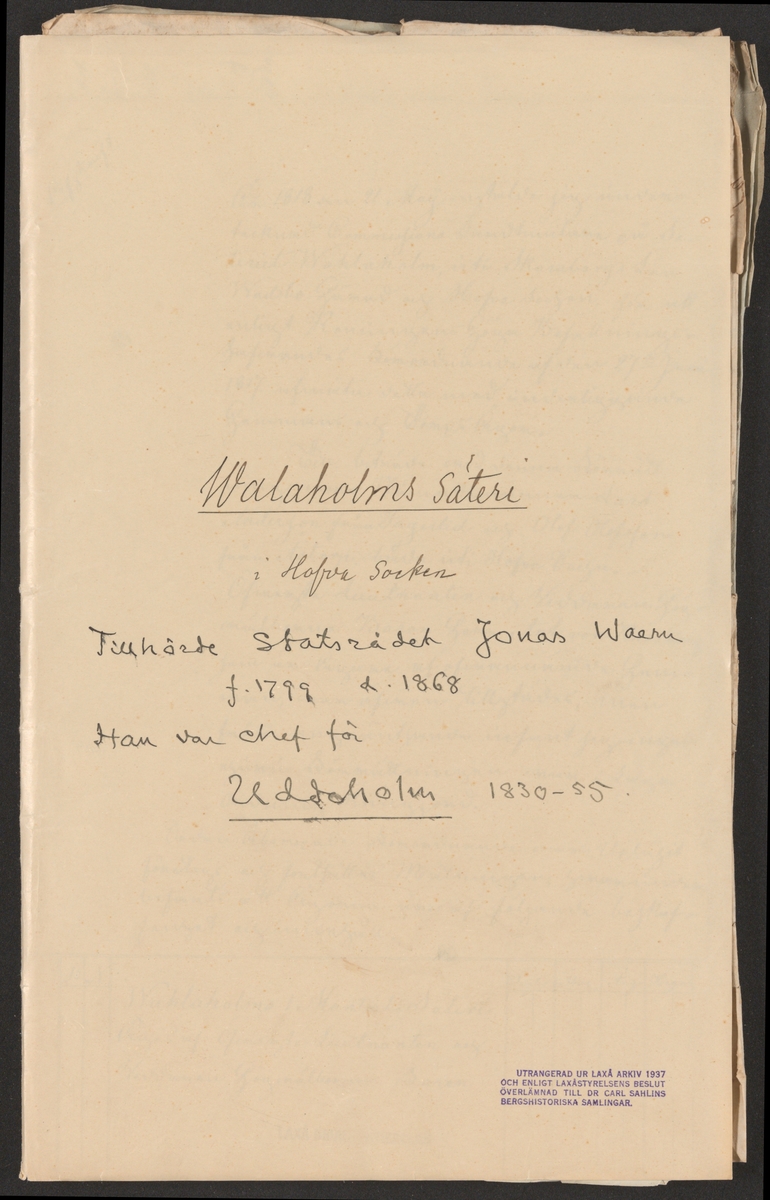 Walaholms Säteri
i Hofva Socken
Tillhörde Statsrådet Jonas Waern
f. 1799 d. 1868
Han var chef för
Uddeholm 1830-55.
UTRANGERAD UR LAXÅ ARKIV 1937
OCH ENLIGT LAXÅSTYRELSENS BESLUT
ÖVERLÄMNAD TILL DR CARL SAHLINS
BERGSHISTORISKA SAMLINGAR.